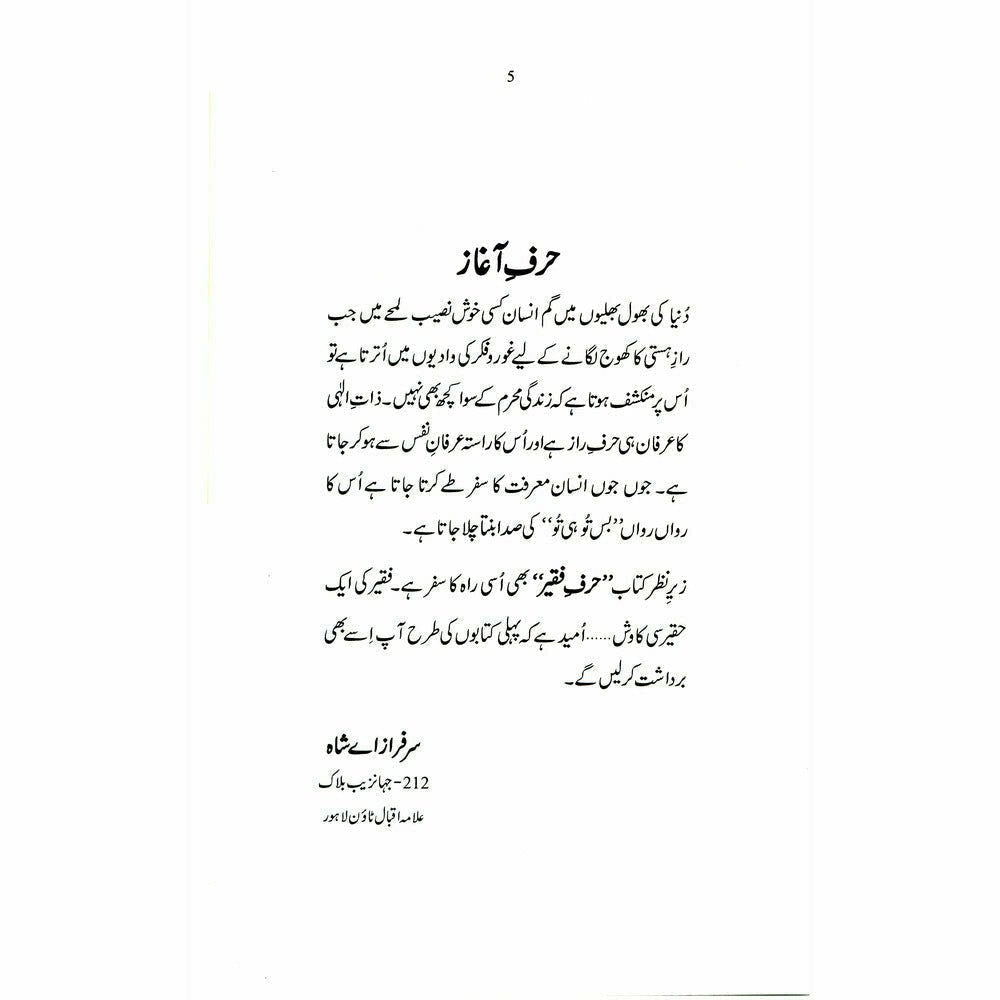 5
حرفِ آغاز
دُنیا کی بھول بھلیوں میں گم انسان کسی خوش نصیب لمحے میں جب
رازِ ہستی کا کھوج لگانے کے لیے غور و فکر کی وادیوں میں اُترتا ہے تو
اُس پر منکشف ہوتا ہے کہ زندگی محرم کے سوا کچھ بھی نہیں۔ ذاتِ الٰہی
کا عرفان ہی حرفِ راز ہے اور اُس کا راستہ عرفانِ نفس سے ہو کر جاتا
ہے۔ جوں جوں انسان معرفت کا سفر طے کرتا جاتا ہے اُس کا
رواں رواں ’’بس تُو ہی تُو‘‘ کی صدا بنتا چلا جاتا ہے۔
زیرِ نظر کتاب ’’حرفِ فقیر‘‘ بھی اُسی راہ کا سفر ہے۔ فقیر کی ایک
حقیر سی کاوش ...... اُمید ہے کہ پہلی کتابوں کی طرح آپ اِسے بھی
برداشت کر لیں گے۔
سرفراز اے شاہ
212- جہانزیب بلاک
علامہ اقبال ٹاؤن لاہور